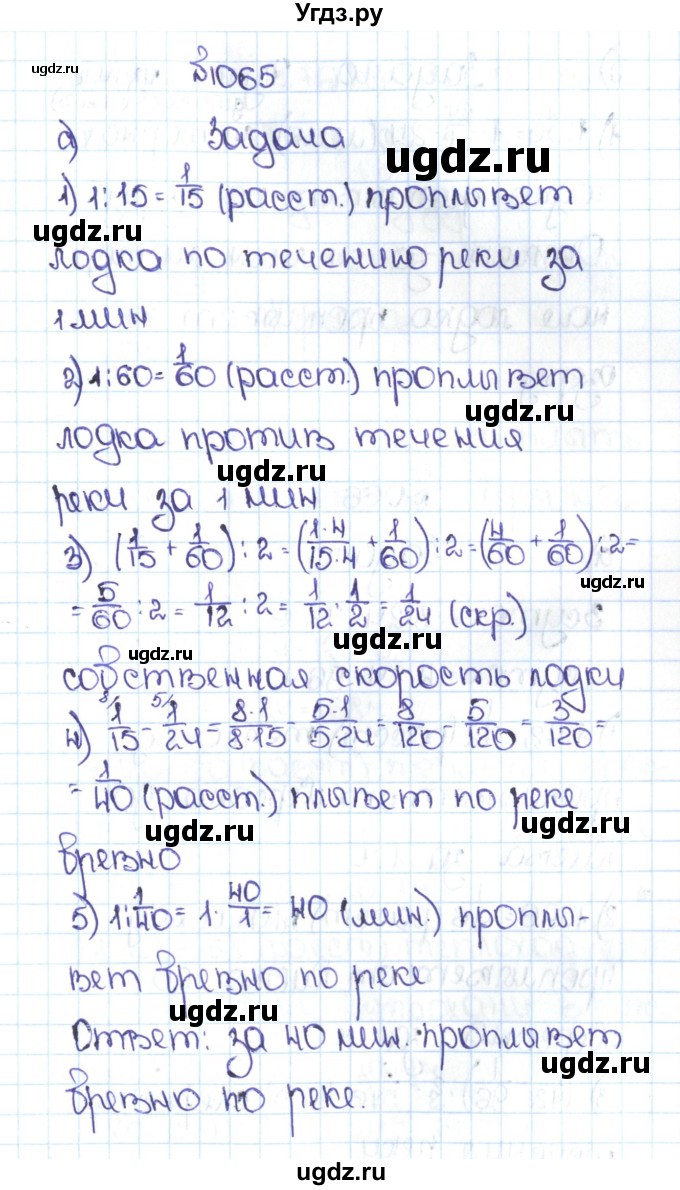 Угдз.ру
ugdz.ru
№1065
а) Задача
ugdz.ru
1) 1:15 = 1/15 (расст.) проплывет
ugdz.ru
лодка по течению реки за
1 мин
2) 1:60 = 1/60 (расст.) проплывет
ugdz.ru
лодка против течения
ugdz.ru
реки за 1 мин
3) (1/15 + 1/60) : 2 = (1·4/15·4 + 1/60) : 2 = (4/60 + 1/60) : 2 =
ugdz.ru
= 5/60 : 2 = 1/12 : 2 = 1/12 · 1/2 = 1/24 (скр.)
ugdz.ru
ugdz.ru
собственная скорость лодки
4) 8/ 1/15 - 5/ 1/24 = 8·1/8·15 - 5·1/5·24 = 8/120 - 5/120 = 3/120 =
= 1/40 (расст.) плывет по реке
ugdz.ru
ugdz.ru
бревно
5) 1 : 1/40 = 1 · 40/1 = 40 (мин.) проплы-
вет бревно по реке
ugdz.ru
Ответ: за 40 мин. проплывет
ugdz.ru
бревно по реке.
ugdz.ru